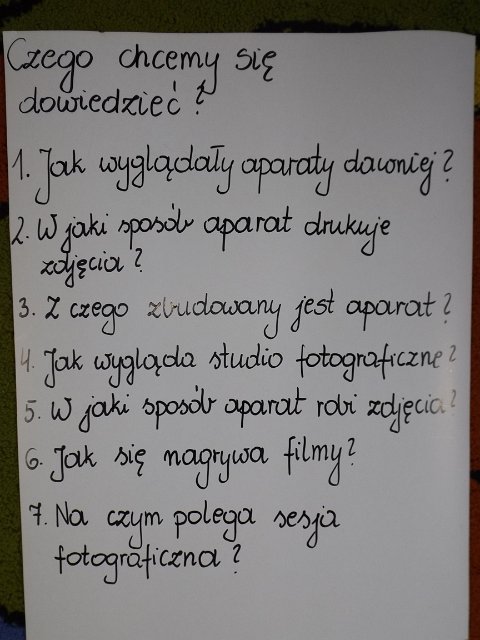 Czego chcemy się
dowiedzieć?
1. Jak wyglądały aparaty dawniej?
2. W jaki sposób aparat drukuje
zdjęcia?
3. Z czego zbudowany jest aparat?
4. Jak wygląda studio fotograficzne?
5. W jaki sposób aparat robi zdjęcia?
6. Jak się nagrywa filmy?
7. Na czym polega sesja
fotograficzna?